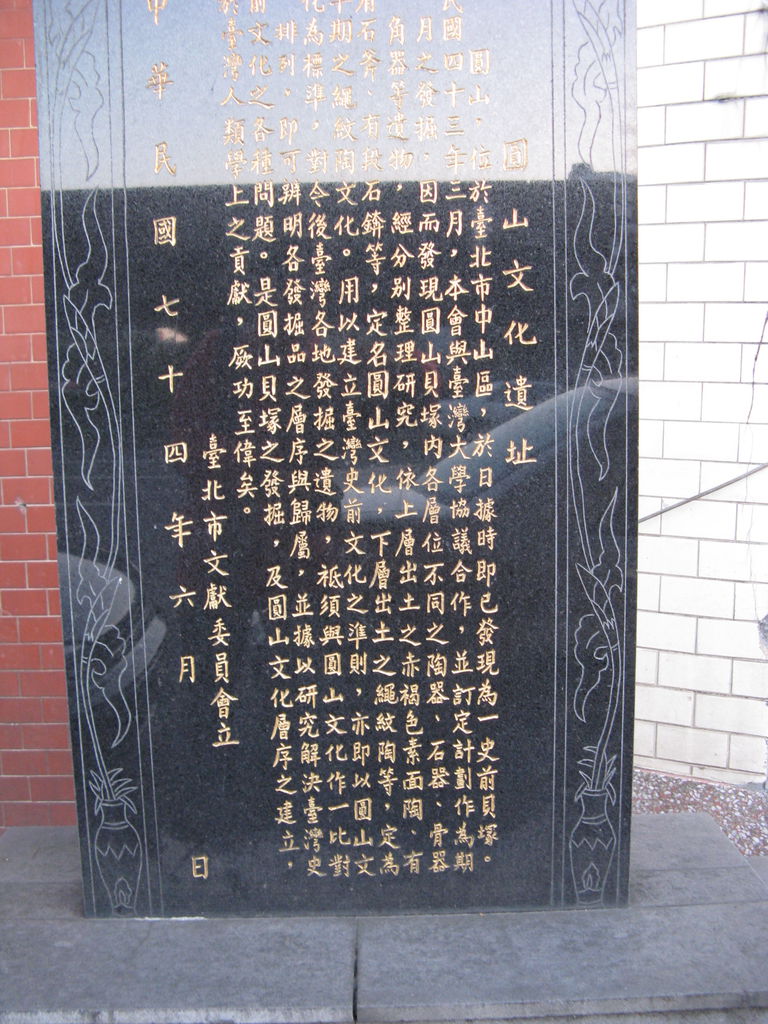 圓山文化遺址
圓山，位於臺北市中山區，於日據時即已發現為一史前貝塚。
民國四十三年三月，本會與臺灣大學協議合作，並訂定計劃作為期
月之發掘，因而發現圓山貝塚內各層位不同之陶器、石器、骨器
角器等遺物，經分別整理研究，依上層出土之赤褐色素面陶、有
肩石斧、有段石錛等，定名圓山文化，下層出土之繩紋陶等，定為
早期之繩紋陶文化。用以建立臺灣史前文化之準則，亦即以圓山文
化為標準，對今後臺灣各地發掘之遺物，祗須與圓山文化作一比對
排列，即可辨明各發掘品之層序與歸屬，並據以研究解決臺灣史
前文化之各種問題。是圓山貝塚之發掘，及圓山文化層序之建立，
於臺灣人類學上之貢獻，厥功至偉矣。
臺北市文獻委員會立
中華民國七十四年六月　日